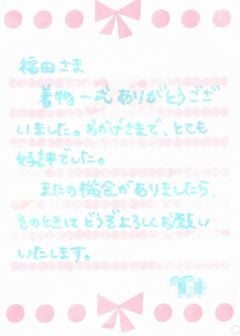 福田さま
着物一式ありがとうござ
いました。おかげさまで、とても
好評でした。
またの機会がありましたら、
そのときはどうぞよろしくお願い
いたします。